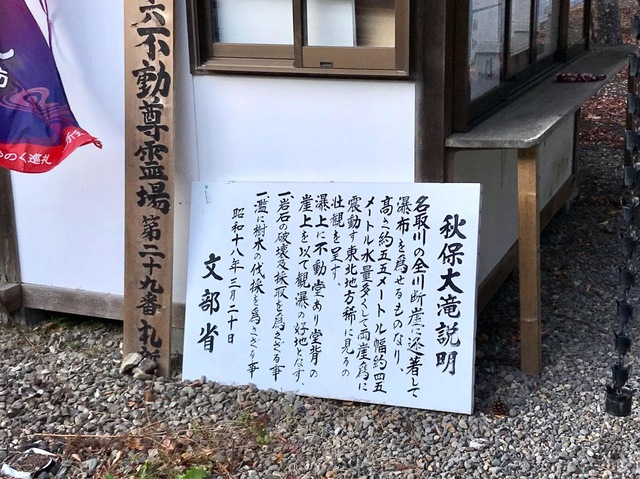 秋保大滝説明
名取川の全川断崖に逆着して
瀑布を為せるものなり、
高さ約五五メートル幅約四五
メートル水量多くして両崖為に
震動す東北地方稀に見るの
壮観を呈す、
瀑上に不動堂あり堂背の
崖上を以て観瀑の好地となす、
一岩石の破壊及採取を為さざる事
一濫に樹木の伐採を為さざる事
昭和十八年三月二十日
文部省
六不動尊霊場 第二十九番札所
のく巡礼